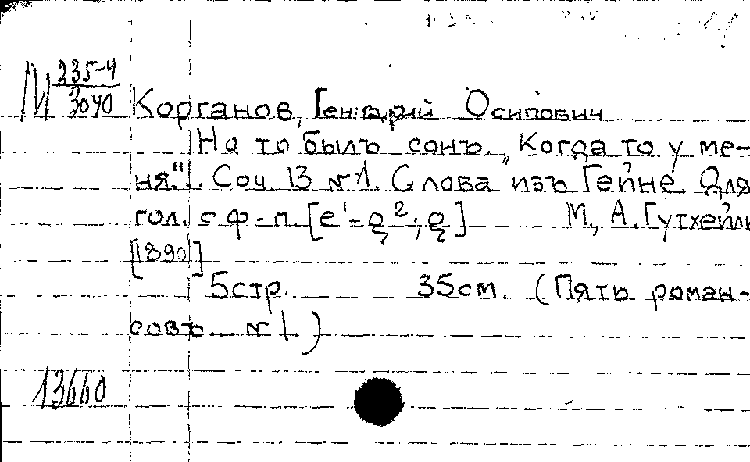 М 235-4
3040
Корганов, Геннадий Осипович
Но то былъ сонъ. „Когда то у ме-
ня." Соч 13 №1. Слова изъ Гейне для
гол. с ф-п. [e¹-g²; g] М., А. Гутхейль
[1890]
5стр. 35см. (Пять роман-
совъ №1.)
13660